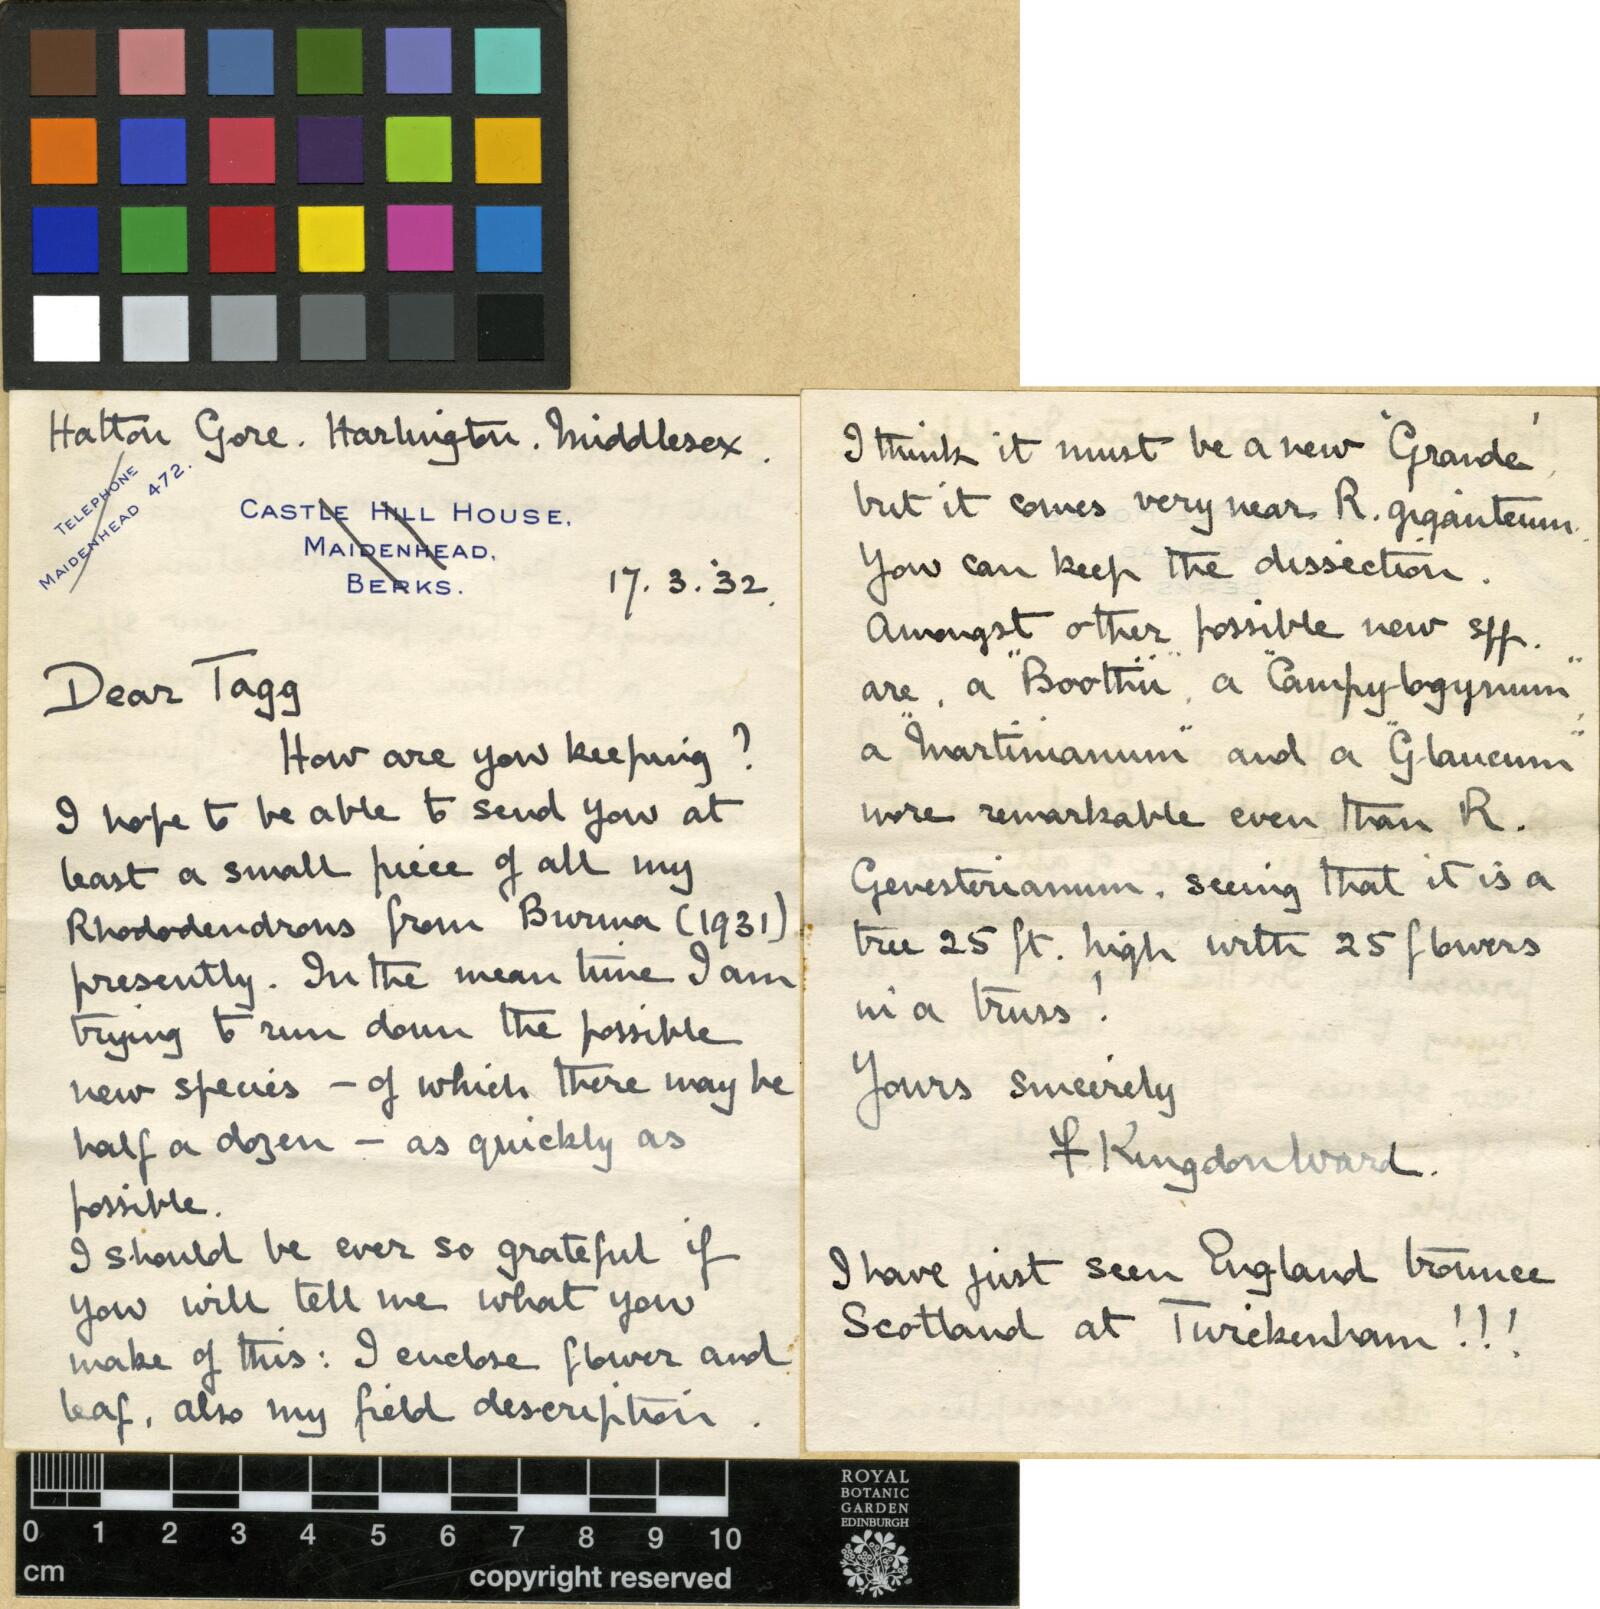 Hatton Gore. Harlington. Middlesex.
TELEPHONE
MAIDENHEAD 472.
CASTLE HILL HOUSE,
MAIDENHEAD,
BERKS.
17. 3. '32.
Dear Tagg
How are you keeping?
I hope to be able to send you at
least a small piece of all my
Rhododendrons from Burma (1931)
presently. In the mean time I am
trying to run down the possible
new species – of which there may be
half a dozen – as quickly as
possible.
I should be ever so grateful if
you will tell me what you
make of this: I enclose flower and
leaf, also my field description.
I think it must be a new 'Grande'
but it comes very near R. giganteum.
You can keep the dissection.
Amongst other possible new spp.
are, a "Boothii", a "Campylogynum"
a "Martinianum" and a "Glaucum"
more remarkable even than R.
Genesterianum, seeing that it is a
tree 25 ft. high with 25 flowers
in a truss!
Yours sincerely
F Kingdon Ward.
I have just seen England trounce
Scotland at Twickenham!!!
0 1 2 3 4 5 6 7 8 9 10
cm
copyright reserved
ROYAL
BOTANIC
GARDEN
EDINBURGH